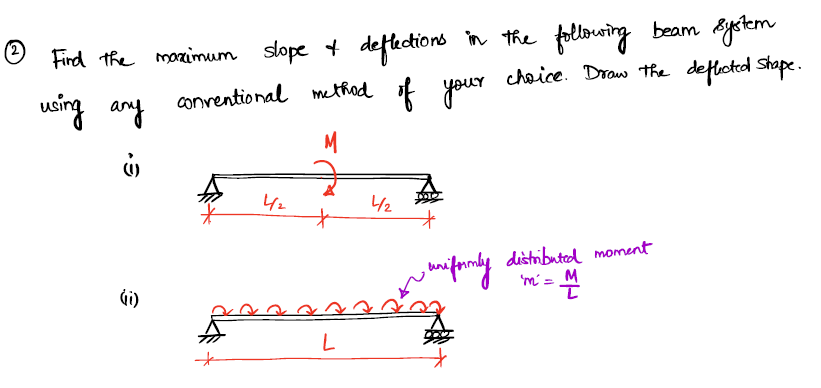 ② Find the maximum slope & deflections in the following beam system
using any conventional method of your choice. Draw the deflected shape.
(i)
M
L/2 L/2
(ii)
uniformly distributed moment
'm' = M/L
L